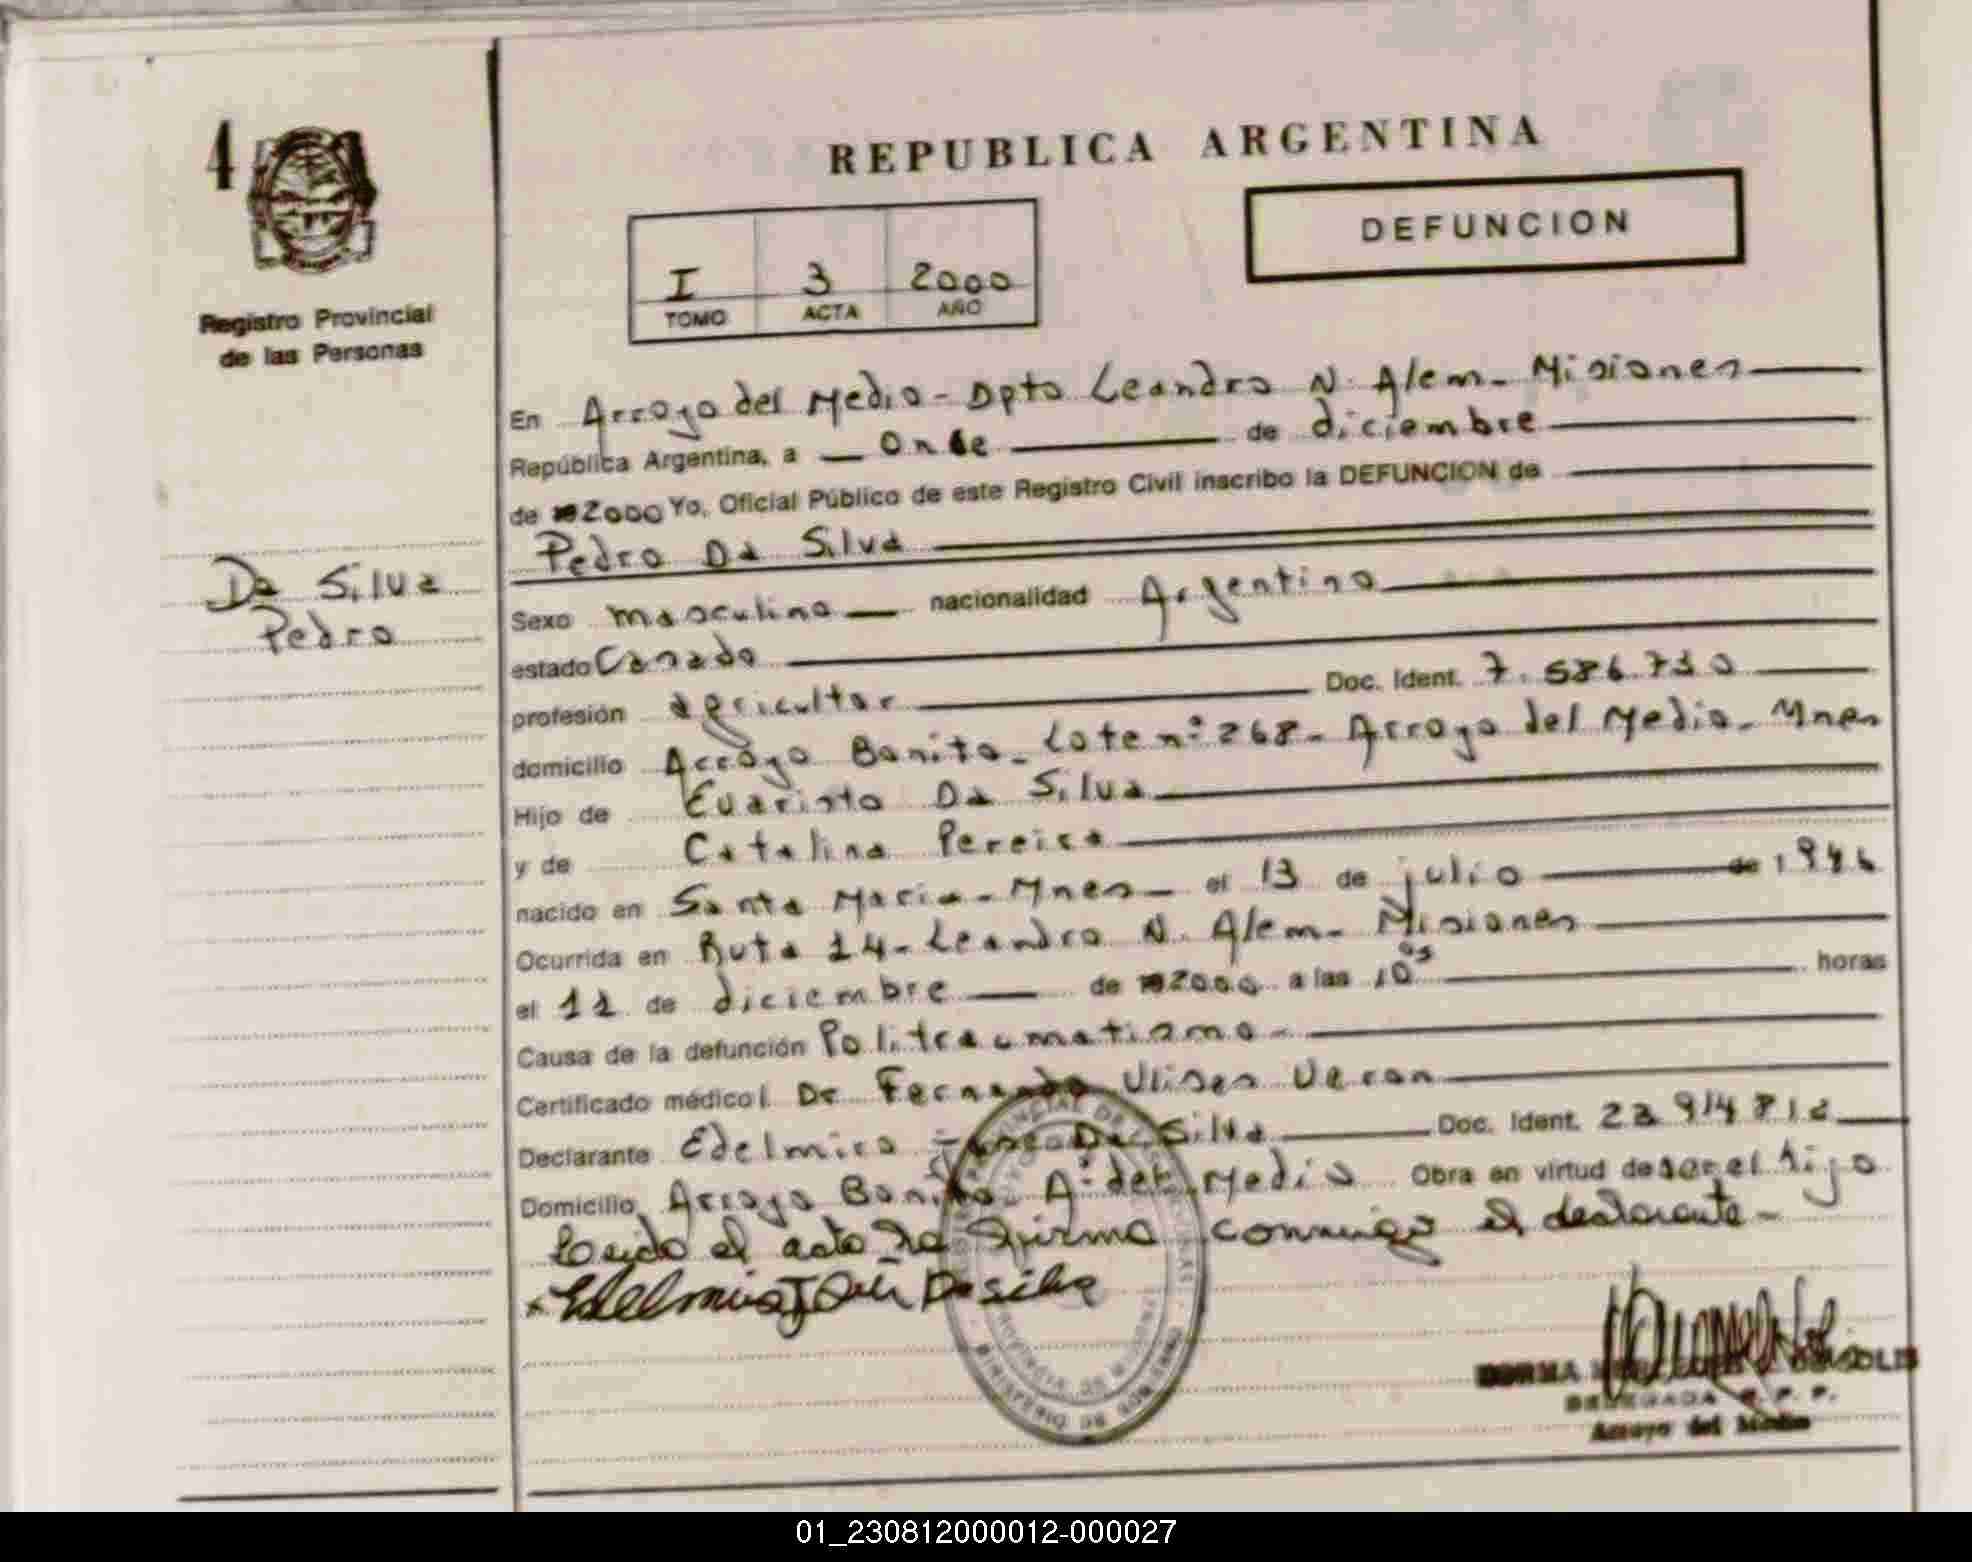 4
Registro Provincial
de las Personas
REPUBLICA ARGENTINA
DEFUNCION
I 3 2000
TOMO ACTA AÑO
En Arroyo del Medio - Dpto Leandro N. Alem - Misiones
República Argentina, a once de diciembre
de 2000 Yo, Oficial Público de este Registro Civil inscribo la DEFUNCION de
Pedro Da Silva
Da Silva
Pedro
Sexo masculino nacionalidad Argentino
estado Casado
profesión agricultor Doc. Ident. 7.586.730
domicilio Arroyo Bonito - Lote nº 268 - Arroyo del Medio - Mnes
Hijo de Evaristo Da Silva
y de Catalina Pereira
nacido en Santa Maria - Mnes - el 13 de julio de 1946
Ocurrida en Ruta 14 - Leandro N. Alem - Misiones
el 11 de diciembre de 2000 a las 10 05 horas
Causa de la defunción Politraumatismo -
Certificado médico Dr Fernando Ulises Veron
Declarante Edelmiro Jose Da Silva Doc. Ident. 22 914 812
Domicilio Arroyo Bonito - Aº del Medio Obra en virtud de ser el hijo
Leido el acta la firma conmigo el declarante -
Edelmiro José Da silva
DELEGADA R. P. P.
Arroyo del Medio
01_230812000012-000027